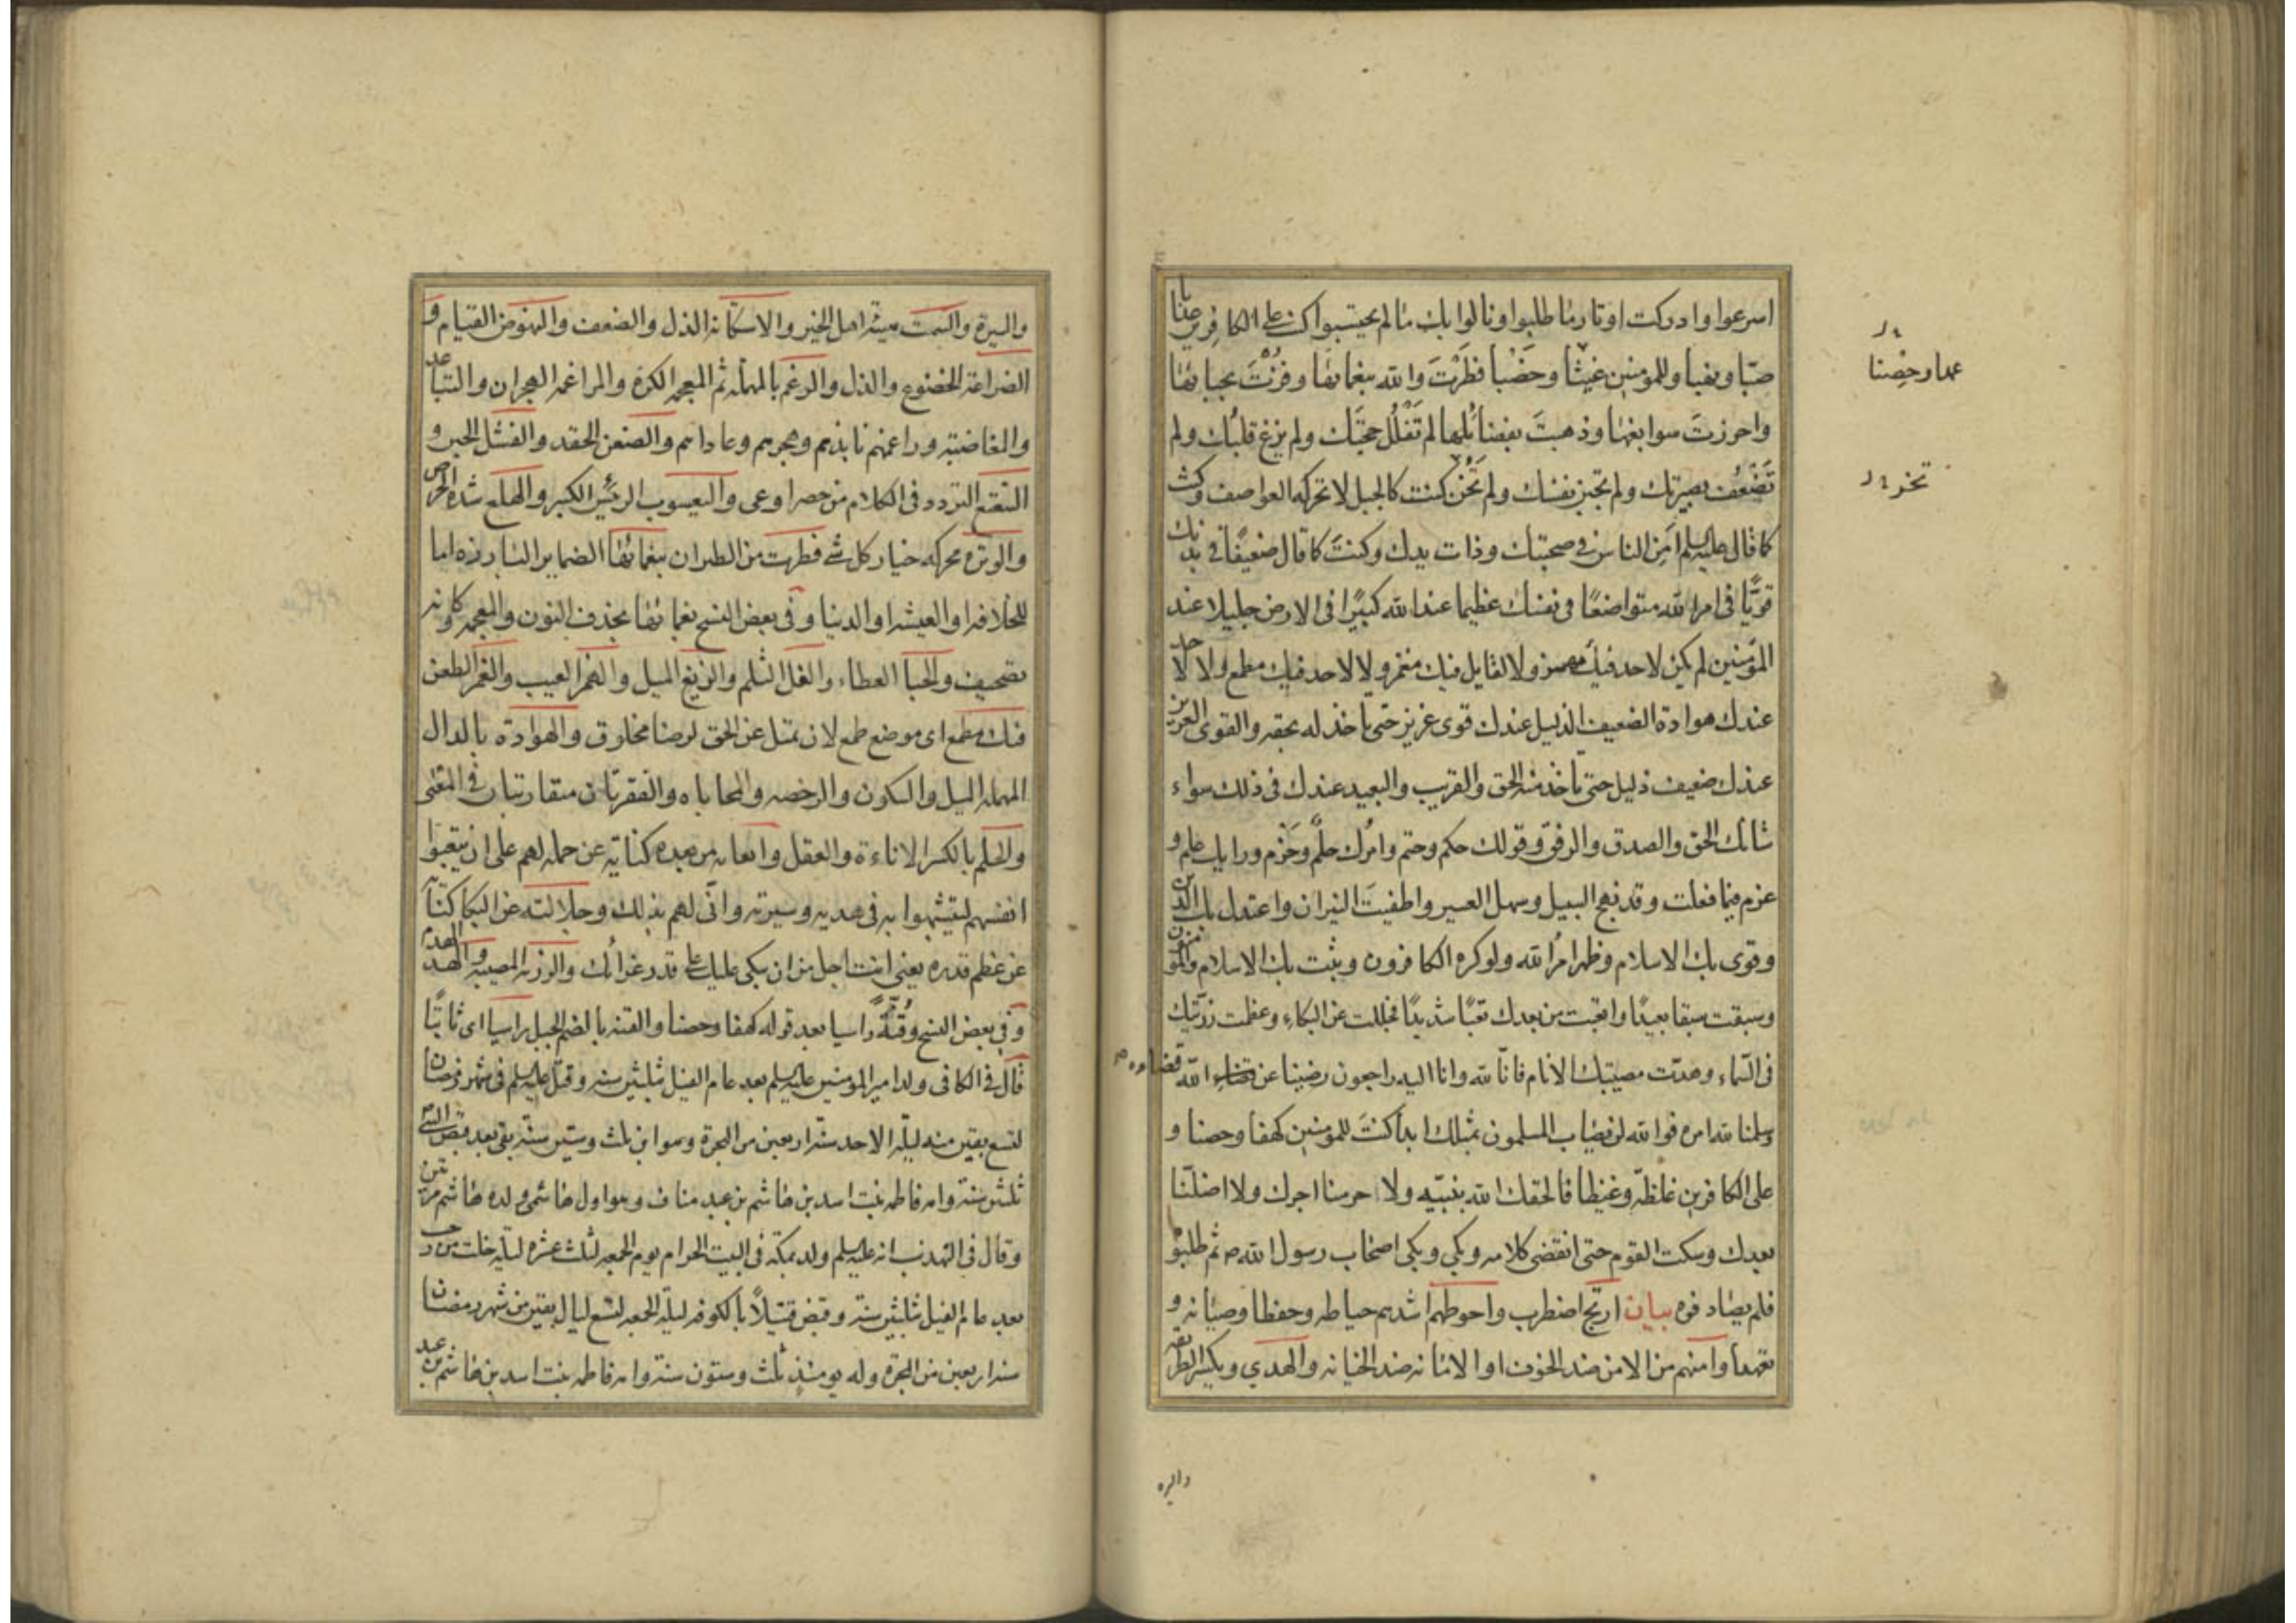 اسرعوا وادركت اوتار ما طلبوا ونالوا بك ما لم يحتسبوا كنت على الكافرين عذابا
صبّا ونهبا وللمؤمنين غيثا وخصبا فطرت والله بنعمائها وفزت بحبائها
واحرزت سوابغها وذهبت بفضائلها لم تفلل حجتك ولم يزغ قلبك ولم
تضعف بصيرتك ولم تجبن نفسك ولم تخن كنت كالجبل لا تحركه العواصف وكنت
كما قال عليه السلم امن الناس في صحبتك وذات يدك وكنت كما قال ضعيفا في بدنك
قويّا في امر الله متواضعا في نفسك عظيما عند الله كبيرا في الارض جليلا عند
المؤمنين لم يكن لاحد فيك مهمز ولا لقايل فيك مغمز ولا لاحد فيك مطمع ولا لاحد
عندك هوادة الضعيف الذليل عندك قوى عزيز حتى تأخذ له بحقه والقوى العزيز
عندك ضعيف ذليل حتى تأخذ منه الحق والقريب والبعيد عندك في ذلك سواء
شانك الحق والصدق والرفق وقولك حكم وحتم وامرك حلم وحزم ورايك علم و
عزم فيما فعلت وقد نهج السبيل وسهل العسير واطفيت النيران واعتدل بك الدين
وقوى بك الاسلام وظهر امر الله ولو كره الكافرون وثبت بك الاسلام والمؤمنون
وسبقت سبقا بعيدا واتعبت من بعدك تعبا شديدا فجللت عن البكاء وعظمت رزيتك
في السّماء وهدّت مصيبتك الانام فانّا لله وانا اليه راجعون رضينا عن الله قضاءه
وسلمنا لله امره فوالله لن يصاب المسلمون بمثلك ابدا كنت للمؤمنين كهفا وحصنا و
على الكافرين غلظة وغيظا فالحقك الله بنبيّه ولا حرمنا اجرك ولا اضلّنا
بعدك وسكت القوم حتى انقضى كلامه وبكى وبكى اصحاب رسول الله ص ثم طلبوه
فلم يصادفوه بيان ارتج اضطرب واحوطهم اشدهم حياطه وحفظا وصيانه و
تعهدا وامنهم من الامن ضد الخوف او الامانه ضد الخيانه والهدي ويكسر الطريقه
عمدا وحصنا
تخر
والسيرة
والسيرة والسمت هيئة اهل الخير والاستكانه الذل والضعف والنهوض القيام و
الضراعة الخضوع والذل والرغم بالمهمله ثم المعجمه الكره والمراغمه الهجران والتباعد
والمغاضبة وراغمهم نابذهم وهجرهم وعاداهم والضغن الحقد والفشل الجبن و
التتعتع التردد في الكلام من حصر او عى واليعسوب الرئيس الكبير والهلع شدة الحرص
والوتره محركه خيار كل شئ فطرت من الطيران بنعمائها الضماير البارزه اما
للخلافه او العيشه او الدنيا وفي بعض النسخ بغمائها بحذف النون والمعجمه وكانه
تصحيف والحبا العطاء والفل الثلم والزيغ الميل والهمز العيب والغمز الطعن
فيك مطمع اى موضع طمع لان تميل عن الحق لرضا مخلوق والهوادة بالدال
المهمله الميل والسكون والرخصه والمحاباه والفقرتان متقاربتان في المعنى
والحلم بالكسر الاناءة والعقل واتعابه من بعده كناية عن حمله لهم على ان يتعبوا
انفسهم ليتشبهوا به في هديه وسيرته وانّى لهم بذلك وجلالته عن البكا كناية
عن عظم قدره يعني انت اجل من ان يبكى عليك على قدر عزائك والرزيه المصيبه والهد الهدم
وفي بعض النسخ وقنّة راسيا بعد قوله كهفا وحصنا والقنه بالضم الجبل راسيا اى ثابتا
قال في الكافي ولد امير المؤمنين عليه السلم بعد عام الفيل بثلثين سنه وقتل عليه السلم في شهر رمضان
لتسع بقين منه ليلة الاحد سنة اربعين من الهجرة وهو ابن ثلث وستين سنة بقى بعد قبض النبي ص
ثلثين سنة وامه فاطمه بنت اسد بن هاشم بن عبد مناف وهو اول هاشمي ولده هاشم مرتين
وقال في التهذيب انه عليه السلم ولد بمكة في البيت الحرام يوم الجمعه لثلث عشره ليلة خلت من رجب
بعد عام الفيل بثلثين سنة وقبض قتيلا بالكوفه ليلة الجمعه لتسع ليال بقين من شهر رمضان
سنة اربعين من الهجرة وله يومئذ ثلث وستون سنة وامه فاطمه بنت اسد بن هاشم بن عبد